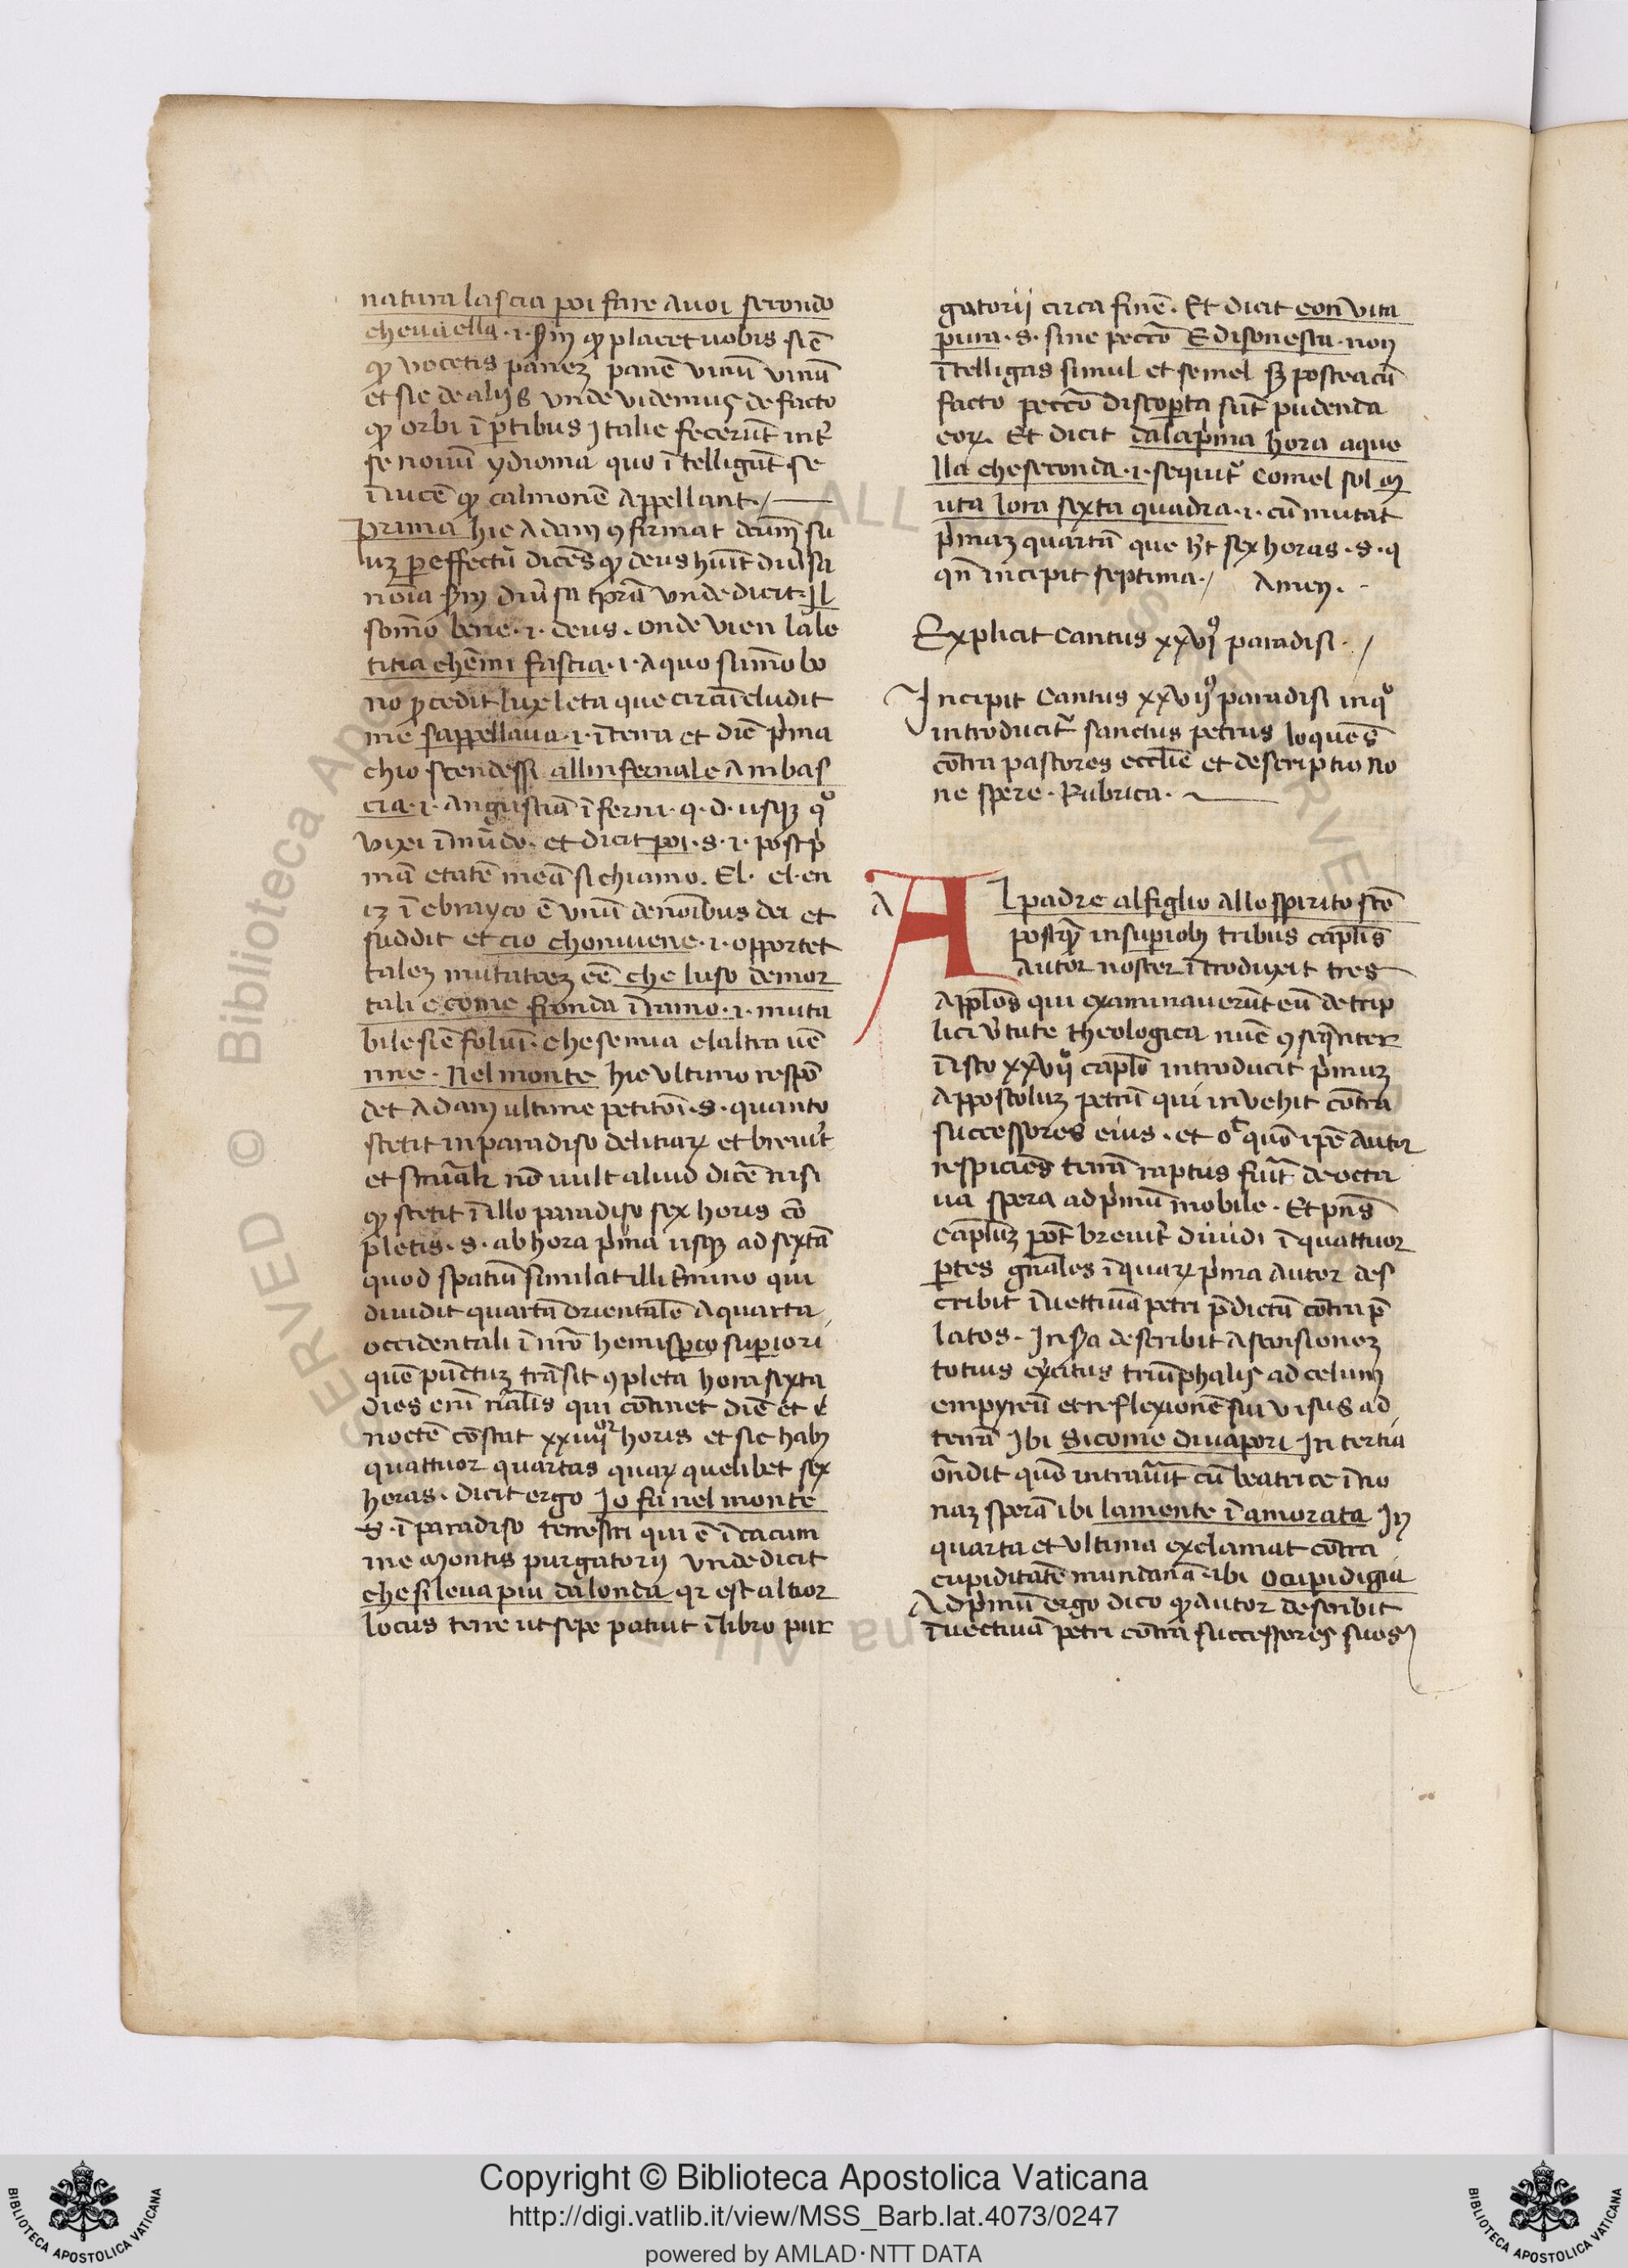 natura lascia poi fare a uoi secondo
che uu ella ·i· scdm qp placet uobis sic̄
qp vocetis panez panē vinū vinū
et sic de aliis vnde videmus de facto
qp orbi ī ptibus Italie fecerūt int̄
se nouū ydioma quo ītelligūt se
īuicē qp calmonē appellant·/
Prima hic Adam ꝯfirmat
uz p effectū dicēs qp deus
noīa unde dicit· Il
som̄o bene ·i· deus · onde vien la le
titia che mi fascia ·i· a quo sum̄o bo
no pcedit lux leta que circūcludit
me sappellaua ·i· ī terra et die pima
chio scendessi all infernale ambas
cia ·i· angustiā īferni · q · d · usqz qo
vixi ī mūdo · et dicit poi · s · i · post p
mā etatē meā si chiamo · El · el · en
iz ī ebrayco ē vnū de noībus dei et
suddit et cio chonuiene ·i· opportet
talez mutatoez eē che luso demor
tali e come fronda ī ramo ·i· muta
bile sic̄ foluī che se nua el altra ue
nne · Nel monte hic vltimo respō
det Adam ultime petitōi · s · quanto
stetit in paradiso delitiaꝝ et breuit̄
et nō uult aliud dicē nisi
qp stetit ī illo paradiso sex horis cō
pletis · s · ab hora pima usqz ad sextā
quod spatiū simulat illi t̄mino qui
diuidit quartā orientalē a quarta
occidentali ī nrō hemispio supiori
quē pūctuz trāsit ꝯpleta hora sexta
dies enī nālis qui cōtinet diē et
noctē cōstat xxiiijor horis et sic habz
quattuor quartas quaꝝ quelibet sex
horas · dicit ergo Io fu nel monte
s · ī paradiso terrestri qui ē ī cacum
ine montis purgatorij vnde dicit
che si leua piu da londa qr est altior
locus terre ut sepe patuit ī libro pur
gatorij circa finē · Et dicit con vita
pura · s · sine peccō E disonesta · non
ītelligas simul et semel sz postea cū
facto peccō discopta sūt pudenda
eoꝝ · Et dicit da la pima hora a que
lla che seconda ·i· sequit̄ Come l sol m
uta lora sexta quadra ·i· cū mutat
pimaz quartā que hȝt sex horas · s · q
qn̄ incipit septima ·/ Amen ·
Explicit Cantus xxvjo paradisi · /
Incipit Cantus xxvijo paradisi in qo
introducit̄ sanctus petrus loquēs
cōtra pastores ecclīe et descriptio no
ne spere · Rubrica ·
a
Al padre al figlio allo spirito scō
postqz in supiobz tribus caplis
autor noster ītroduxit tres
applōs qui examinauerūt eū de trip
lici v̄tute theologica nūc ꝯseqnter
ī isto xxvijo caplō introducit pimuz
Appostoluz petrū qui inuehit cōtra
successores eius · et quō ipē Autor
respiciēs terrā raptus fuit de octa
ua spera ad pimū mobile · Et pn̄s
capluz pōt breuit̄ diuidi ī quattuor
ptes gnāles ī quaꝝ pima autor des
cribit īuettiuā petri pdictā cōtra p
latos · In describit ascensionez
totius ex̄citus triūphalis ad celum
empyreū et reflexionē sui visus ad
terrā Ibi Si come di uapori In tertia
ōndit quō intrauit cū beatrice ī no
naz sperā ibi la mente īamorata In
quarta et vltima exclamat cōtra
cupiditatē mundanā ibi O cupidigia
Ad pimū ergo dico qp autor describit
īuectiuā petri cōtra successores suos
Copyright © Biblioteca Apostolica Vaticana
http://digi.vatlib.it/view/MSS_Barb.lat.4073/0247
powered by AMLAD·NTT DATA
BIBLIOTECA APOSTOLICA VATICANA
BIBLIOTECA APOSTOLICA VATICANA